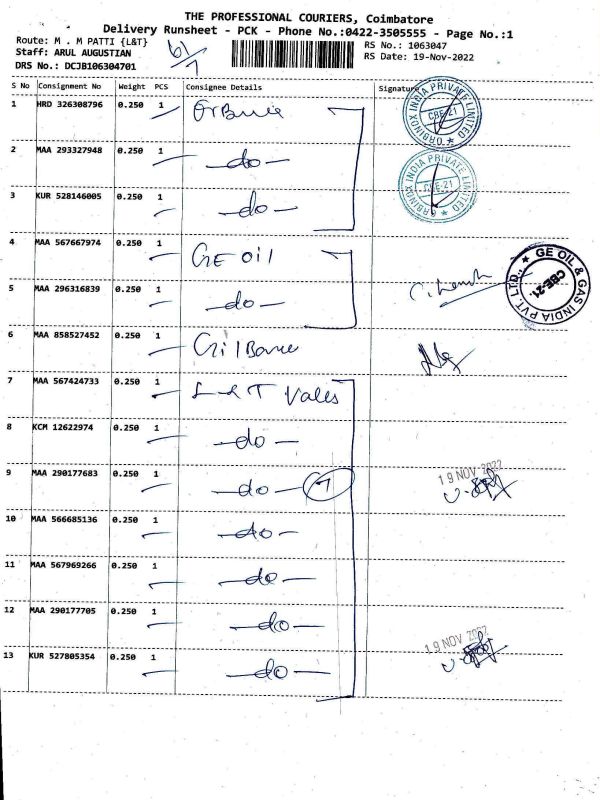 THE PROFESSIONAL COURIERS, Coimbatore
Delivery Runsheet - PCK - Phone No.:0422-3505555 - Page No.:1
Route: M . M PATTI {L&T} RS No.: 1063047
Staff: ARUL AUGUSTIAN RS Date: 19-Nov-2022
DRS No.: DCJB106304701
S No Consignment No Weight PCS Consignee Details Signature
1 HRD 326308796 0.250 1
ORBINOX INDIA PRIVATE LIMITED CBE-21
2 MAA 293327948 0.250 1 -do-
ORBINOX INDIA PRIVATE LIMITED CBE-21
3 KUR 528146005 0.250 1 -do-
4 MAA 567667974 0.250 1 GE Oil
GE OIL & GAS INDIA PVT. LTD., CBE-21
5 MAA 296316839 0.250 1 -do-
6 MAA 858527452 0.250 1
7 MAA 567424733 0.250 1 L & T Valves
8 KCM 12622974 0.250 1 -do-
9 MAA 290177683 0.250 1 -do- 7 19 NOV 2022
10 MAA 566685136 0.250 1 -do-
11 MAA 567969266 0.250 1 -do-
12 MAA 290177705 0.250 1 -do-
19 NOV 2022
13 KUR 527805354 0.250 1 -do-